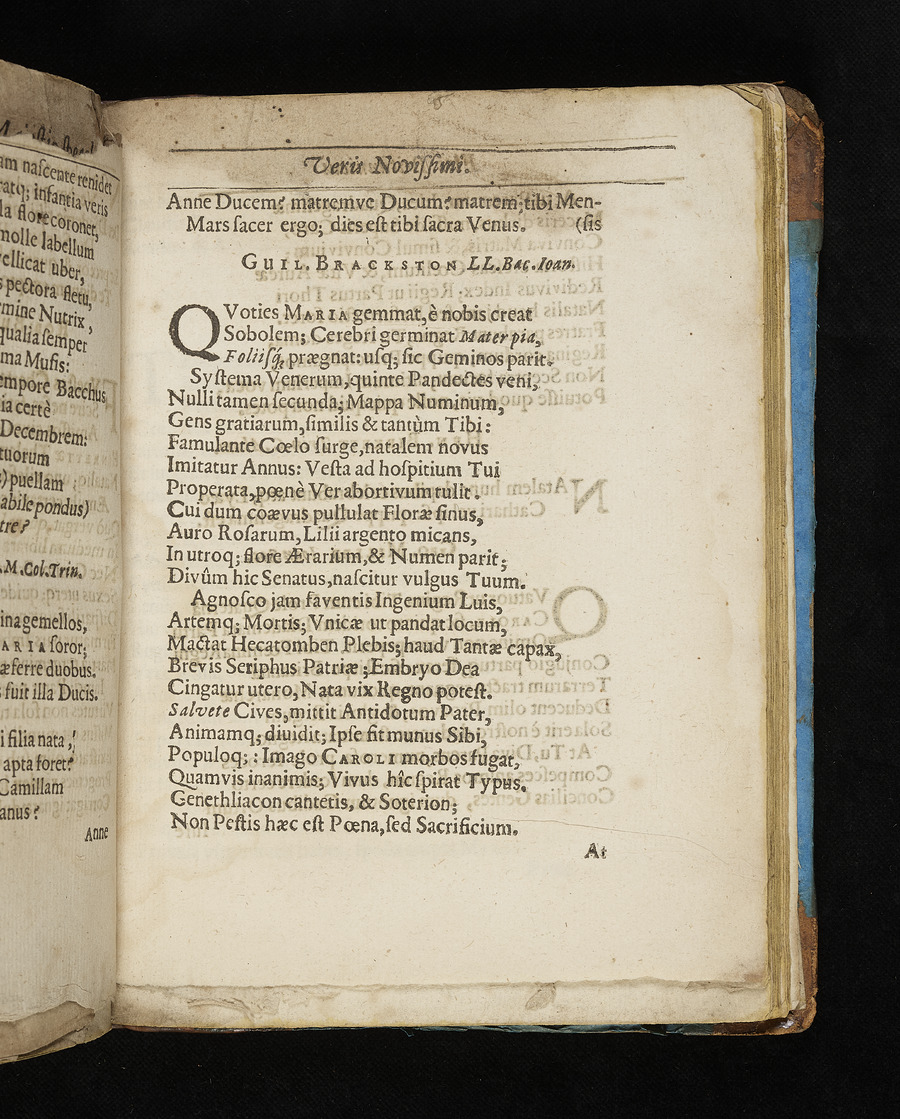 am naſcente renidet
ratq; infantia veris
la flore coronet,
molle labellum
vellicat uber,
pectora fletu,
mine Nutrix,
qualia ſemper
ma Muſis:
empore Bacchus
ia certè
Decembrem:
tuorum
) puellam
abile pondus)
tre?
.M.Col.Trin.
ina gemellos,
ARIA ſoror;
æ ferre duobus.
fuit illa Ducis.
i filia nata,!
apta foret?
Camillam
anus?
Anne
Veris Noviſſimi.
Anne Ducem? matremve Ducum? matrem; tibi Men-
Mars ſacer ergo; dies eſt tibi ſacra Venus. (ſis
GUIL. BRACKSTON LL.Bac.Ioan.
QVoties MARIA gemmat, è nobis creat
Sobolem; Cerebri germinat Mater pia,
Foliiſq́; prægnat: uſq; ſic Geminos parit.
Syſtema Venerum, quinte Pandectes veni,
Nulli tamen ſecunda; Mappa Numinum,
Gens gratiarum, ſimilis & tantùm Tibi:
Famulante Cœlo ſurge, natalem novus
Imitatur Annus: Veſta ad hoſpitium Tui
Properata, pœnè Ver abortivum tulit.
Cui dum coævus pullulat Floræ ſinus,
Auro Roſarum, Lilii argento micans,
In utroq; flore Ærarium, & Numen parit;
Divûm hic Senatus, naſcitur vulgus Tuum.
Agnoſco jam faventis Ingenium Luis,
Artemq; Mortis; Vnicæ ut pandat locum,
Mactat Hecatomben Plebis; haud Tantæ capax,
Brevis Seriphus Patriæ; Embryo Dea
Cingatur utero, Nata vix Regno poteſt.
Salvete Cives, mittit Antidotum Pater,
Animamq; diuidit; Ipſe fit munus Sibi,
Populoq; : Imago CAROLI morbos fugat,
Quamvis inanimis; Vivus hîc ſpirat Typus.
Genethliacon cantetis, & Soterion;
Non Peſtis hæc eſt Pœna, ſed Sacrificium.
At